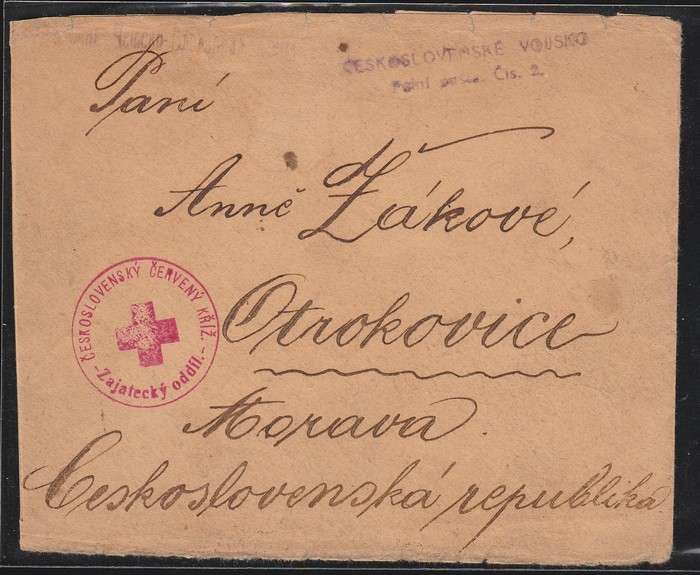 ČESKOSLOVENSKÉ VOJSKO
Polní pošta Čís. 2.
Paní
Anně Žákové,
Otrokovice
Morava.
Československá republika.
ČESKOSLOVENSKÝ ČERVENÝ KŘÍŽ.
-Zajatecký oddíl.-